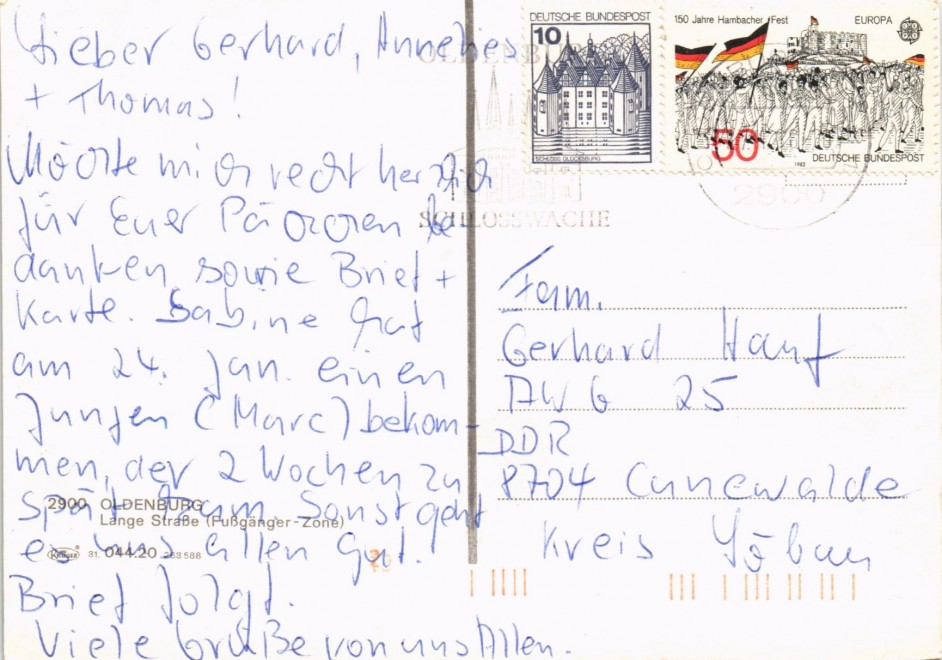 Lieber Gerhard, Annelies
+ Thomas!
Möchte mich recht herzlich
für Euer Päckchen be
danken, sowie Brief +
Karte. Sabine hat
am 24. Jan. einen
Jungen (Marc) bekom-
men, der 2 Wochen zu
spät kam. Sonst geht
es uns allen gut.
Brief folgt.
Viele Grüße von uns Allen.
2900 OLDENBURG
Lange Straße (Fußgänger-Zone)
KRÜGER 31. 044.20 263588
DEUTSCHE BUNDESPOST
10
SCHLOSS GLÜCKSBURG
150 Jahre Hambacher Fest
EUROPA
50
1982
DEUTSCHE BUNDESPOST
OLDENBURG
SCHLOSSWACHE
2900
Fam.
Gerhard Hauf
AWG 25
DDR
8704 Cunewalde
Kreis Löbau